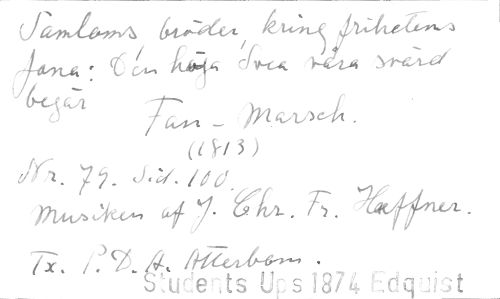 Samloms, bröder, kring frihetens
fana: Den höga Svea våra svärd
begär
Fan-Marsch.
(1813)
Nr. 79. Sid. 100.
Musiken af J. Chr. Fr. Hæffner.
Tx. P. D. A. Atterbom.
Students Ups 1874 Edquist